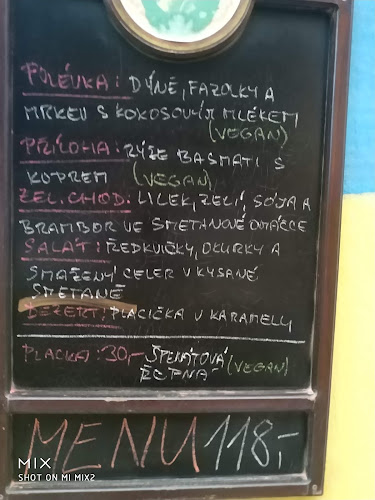 POLÉVKA: DÝNĚ, FAZOLKY A
MRKEV S KOKOSOVÝM MLÉKEM
(VEGAN)
PŘÍLOHA: RÝŽE BASMATI S
KOPREM (VEGAN)
ZEL.CHOD: LILEK, ZELÍ, SÓJA A
BRAMBOR VE SMETANOVÉ OMÁČCE
SALÁT: ŘEDKVIČKY, OKURKY A
SMAŽENÝ CELER V KYSANÉ
SMETANĚ
DEZERT: PLACIČKA V KARAMELU
PLACKA: 30,- ŠPENÁTOVÁ
ŘEPNÁ (VEGAN)
MENU 118,-
MIX
SHOT ON MI MIX2